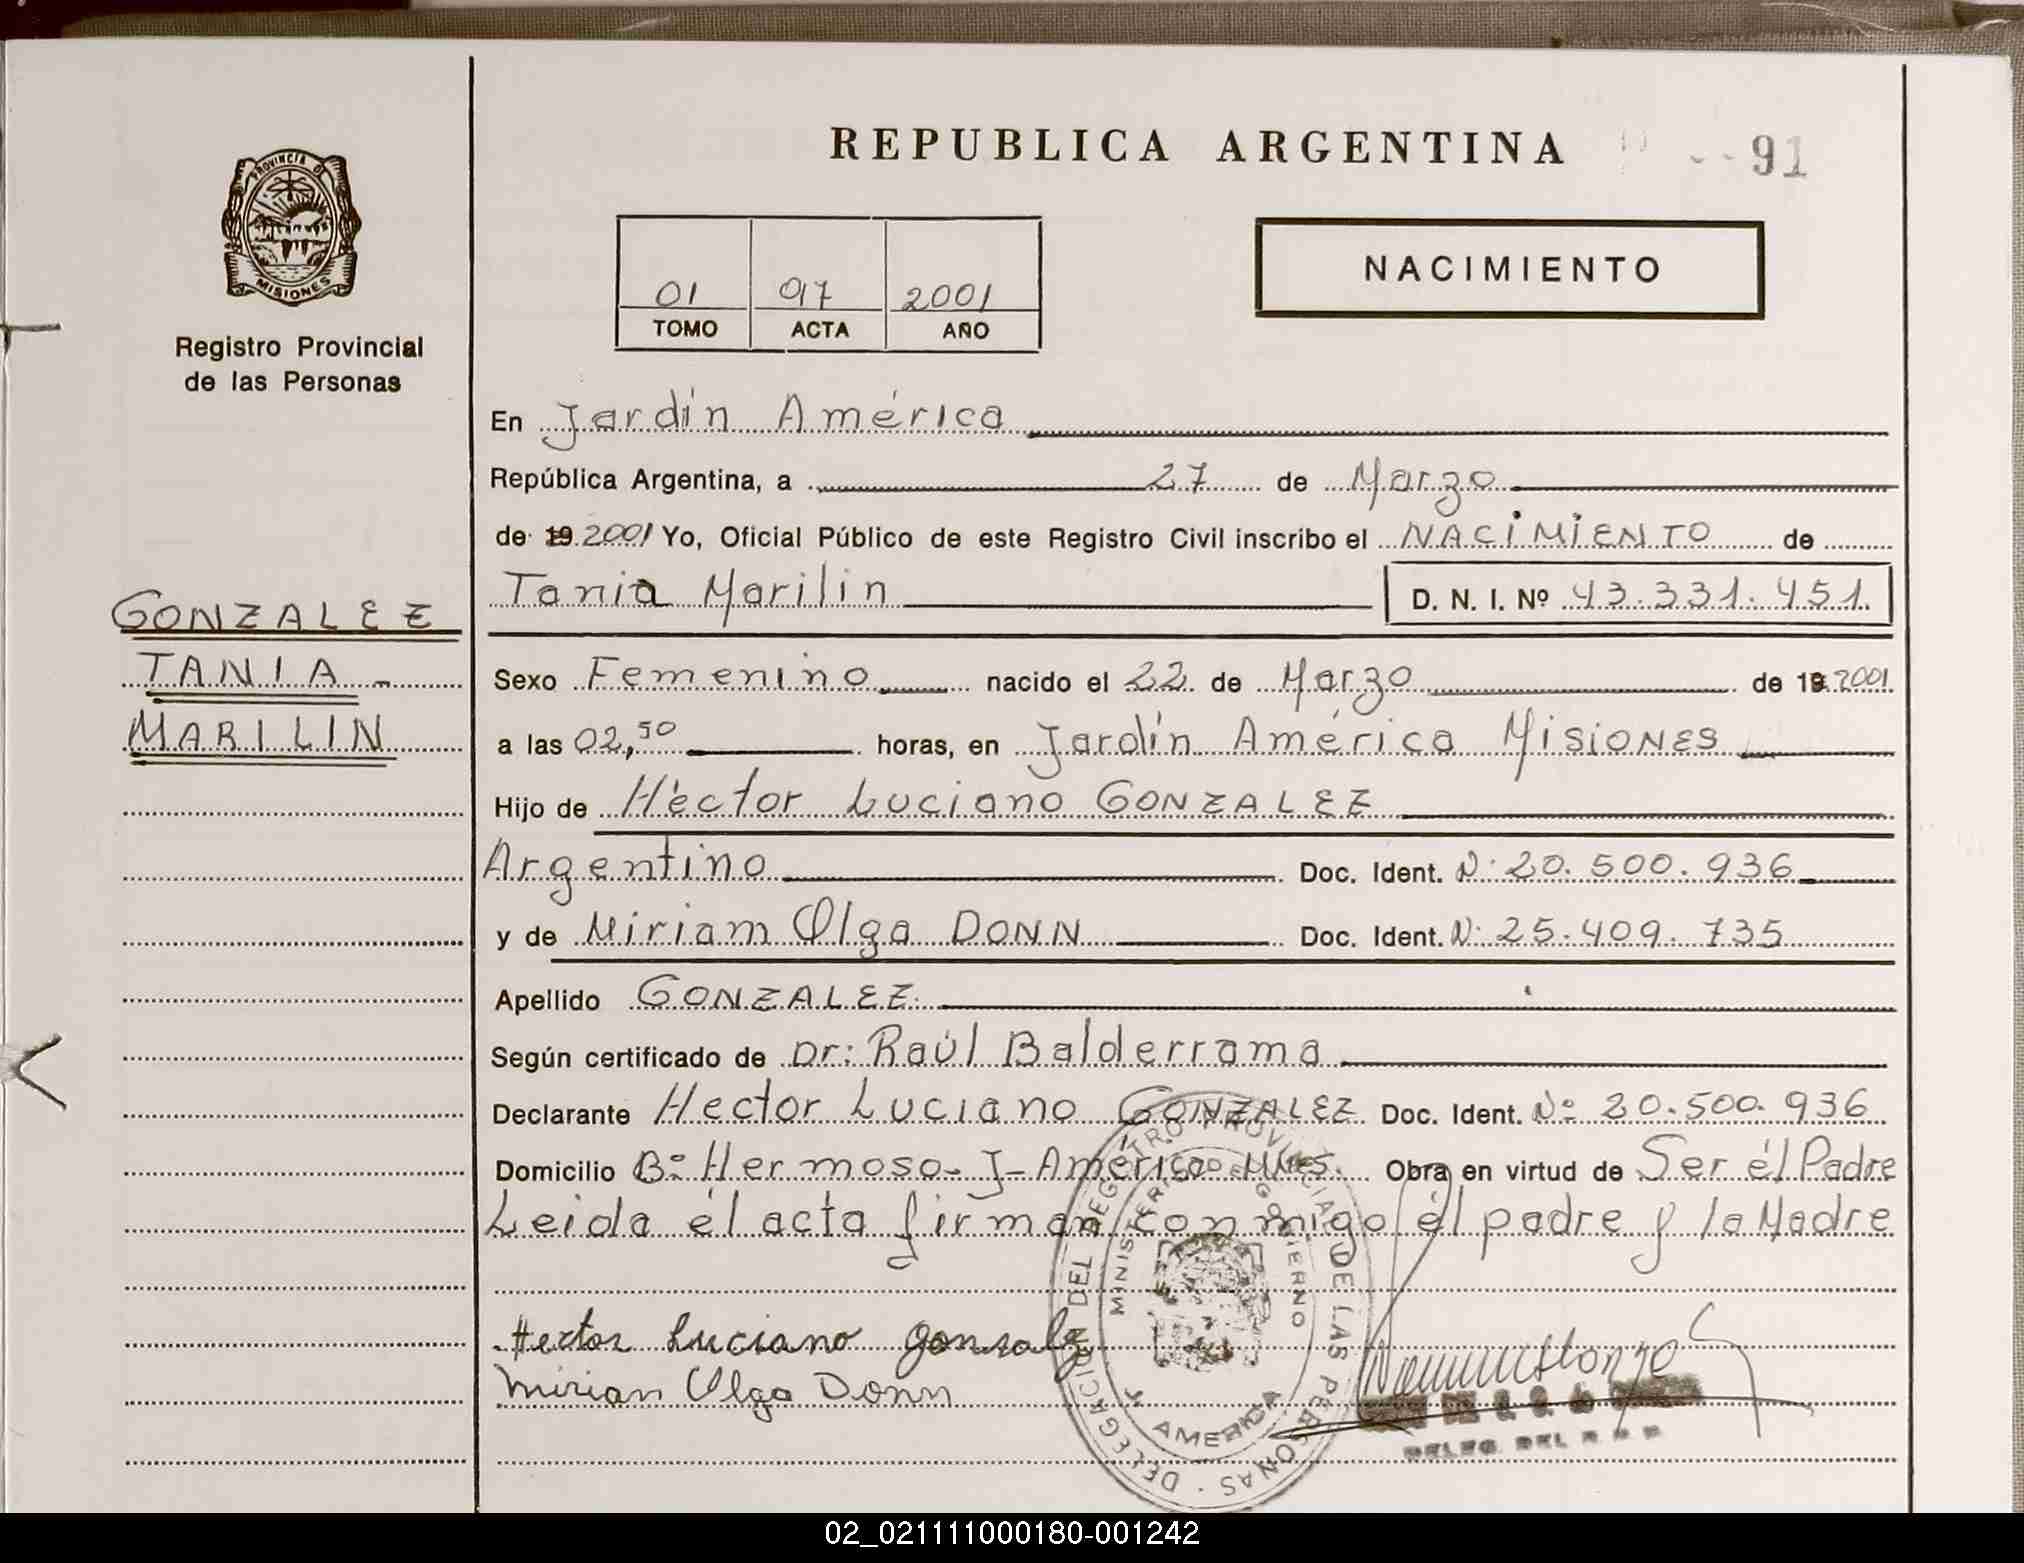 REPUBLICA ARGENTINA
91
PROVINCIA DE
MISIONES
Registro Provincial
de las Personas
01 917 2001
TOMO ACTA AÑO
NACIMIENTO
En Jardín América
República Argentina, a 27 de Marzo
de 19 2001 Yo, Oficial Público de este Registro Civil inscribo el NACIMIENTO de
Tania Marilin D. N. I. Nº 43.331.451.
GONZALEZ
TANIA -
MARILIN
Sexo Femenino nacido el 22 de Marzo de 19 2001
a las 02,50 horas, en Jardín América Misiones
Hijo de Héctor Luciano GONZALEZ
Argentino Doc. Ident. Nº 20.500.936
y de Miriam Olga DONN Doc. Ident. Nº 25.409.735
Apellido GONZALEZ
Según certificado de Dr: Raúl Balderrama
Declarante Hector Luciano GONZALEZ Doc. Ident. Nº 20.500.936
Domicilio Bº Hermoso- J-América Mnes. Obra en virtud de Ser él Padre
Leida él acta firman conmigo él padre y la Madre
Hector Luciano
Mirian Olga Donn
DELEGACION DEL REGISTRO PROVINCIAL DE LAS PERSONAS
MINISTERIO DE GOBIERNO
J. AMERICA
DELEG. DEL R. P. P.
02_021111000180-001242